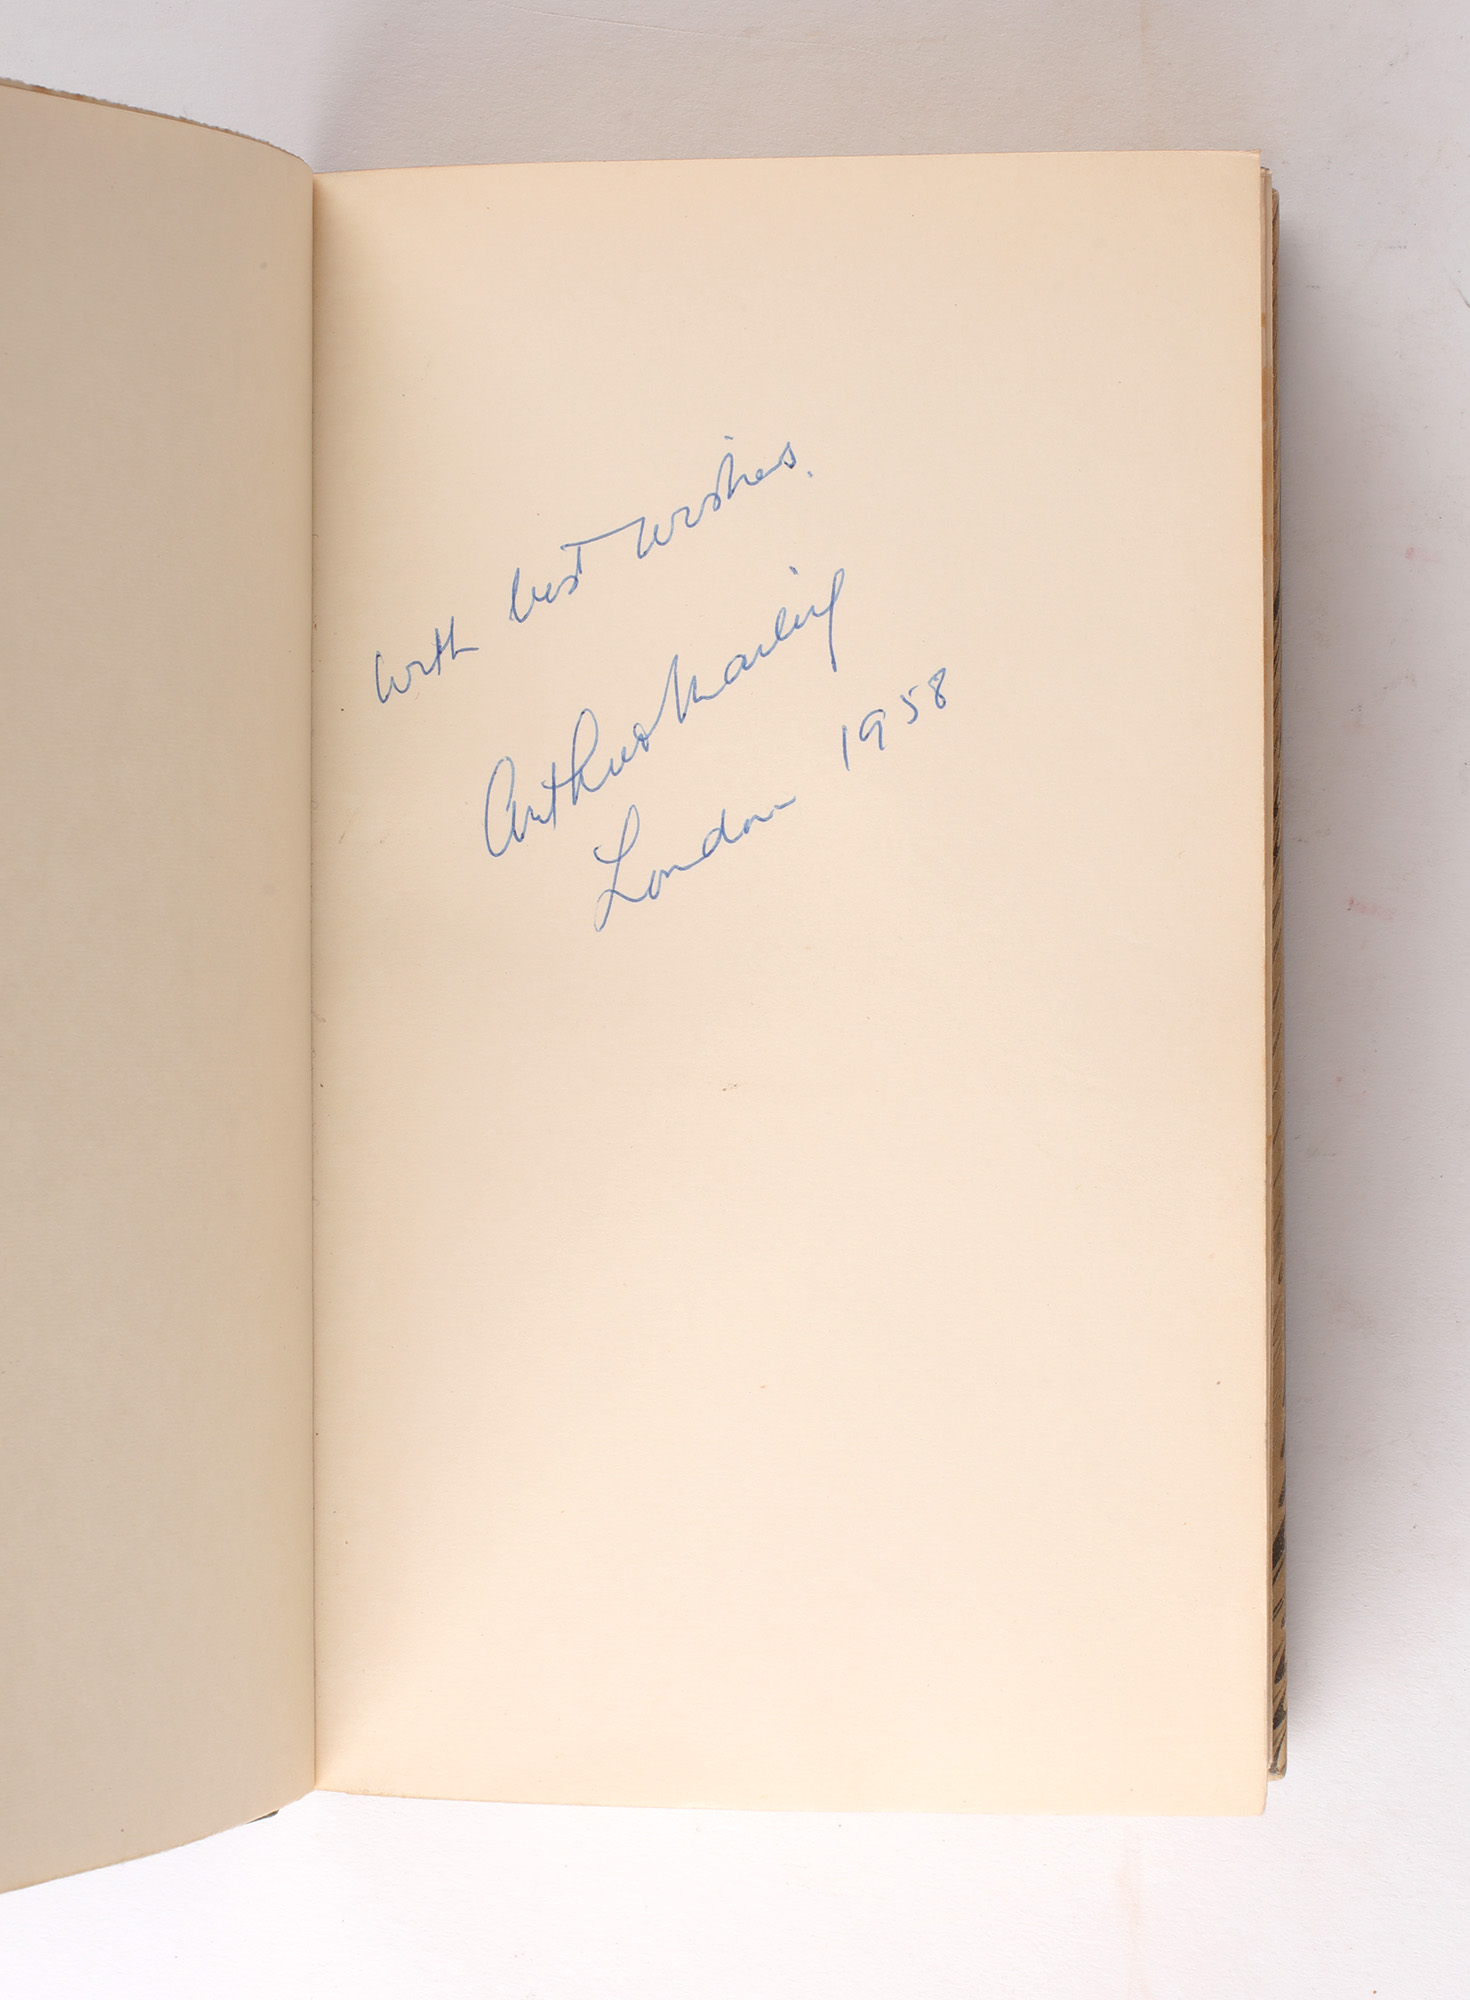 With best wishes.
Arthur Marling
London 1958